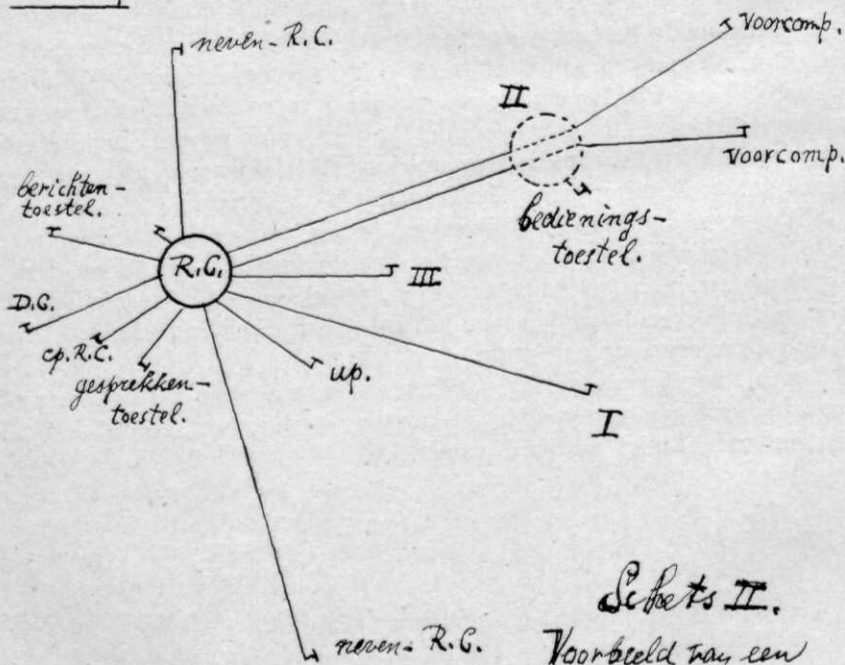 neven- R.C.
Voorcomp.
II
Voorcomp.
berichten-
toestel.
bedienings-
toestel.
R.C.
III
D.C.
cp. R.C.
gesprekken-
toestel.
up.
I
neven- R.C.
Schets II.
Voorbeeld van een